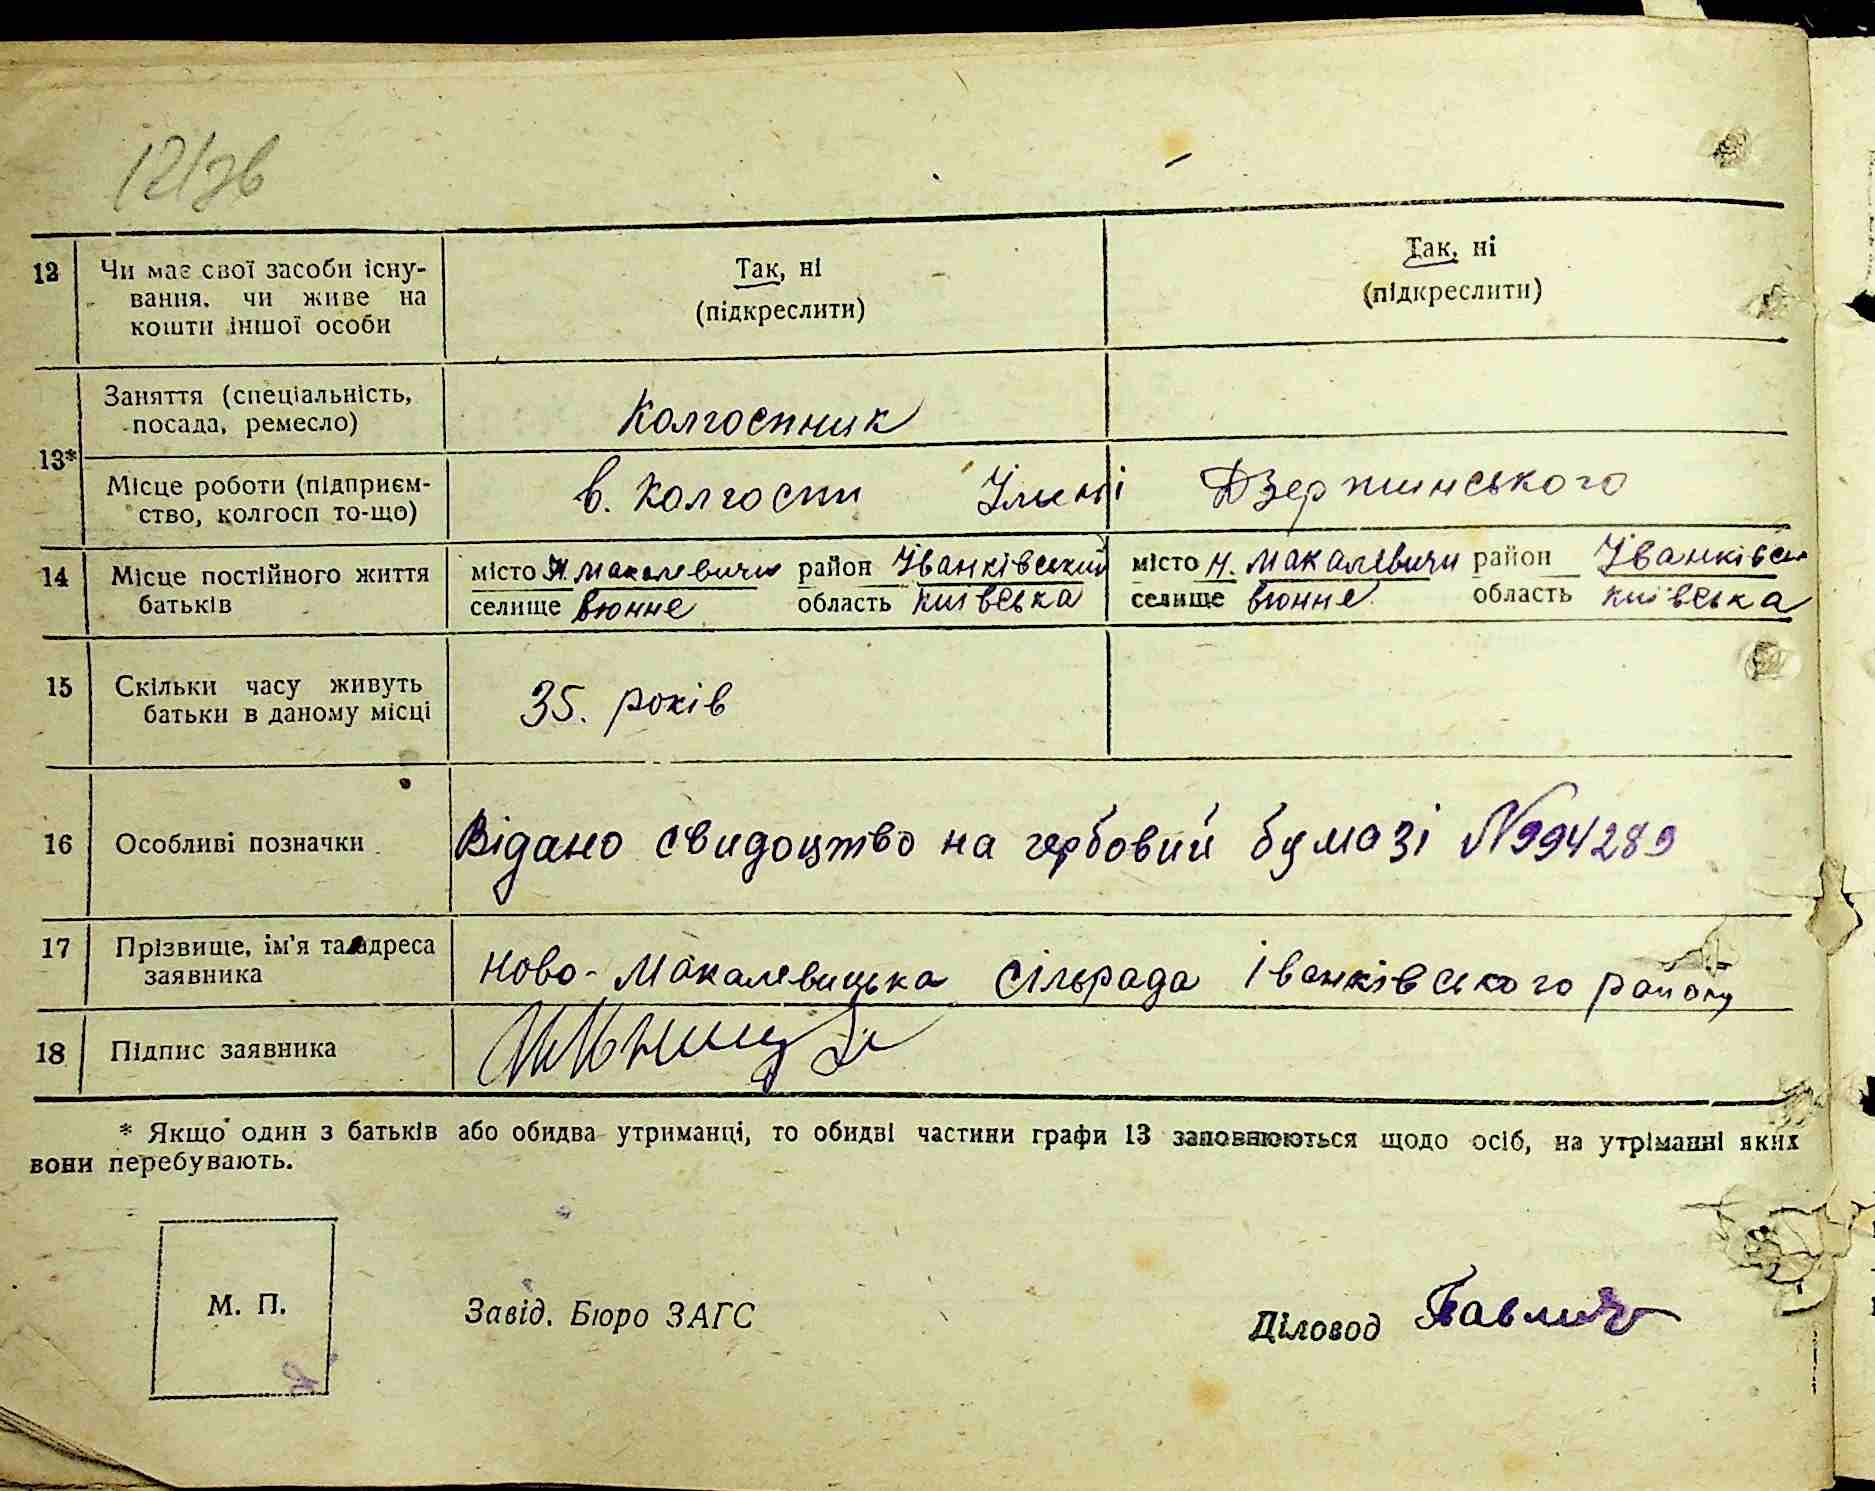 12/зв
12 Чи має свої засоби існу- Так, ні Так, ні
вання, чи живе на (підкреслити) (підкреслити)
кошти іншої особи
Заняття (спеціальність, Колгоспник
посада, ремесло)
13*
Місце роботи (підприєм- в. Колгоспи Імені Дзержинського
ство, колгосп то-що)
14 Місце постійного життя місто Н. Макалевичи район Іванківський місто Н. Макалевичи район Іванківсь
батьків селище вюнне область київська селище вюнне область київська
15 Скільки часу живуть 35. років
батьки в даному місці
16 Особливі позначки Відано свидоцтво на гербовий бумазі N 994289
17 Прізвище, ім'я та адреса Ново-Макалевицька сільрада Іванківського району
заявника
18 Підпис заявника
* Якщо один з батьків або обидва утриманці, то обидві частини графи 13 заповнюються щодо осіб, на утріманні яких
вони перебувають.
М. П. Завід. Бюро ЗАГС Діловод Павлич